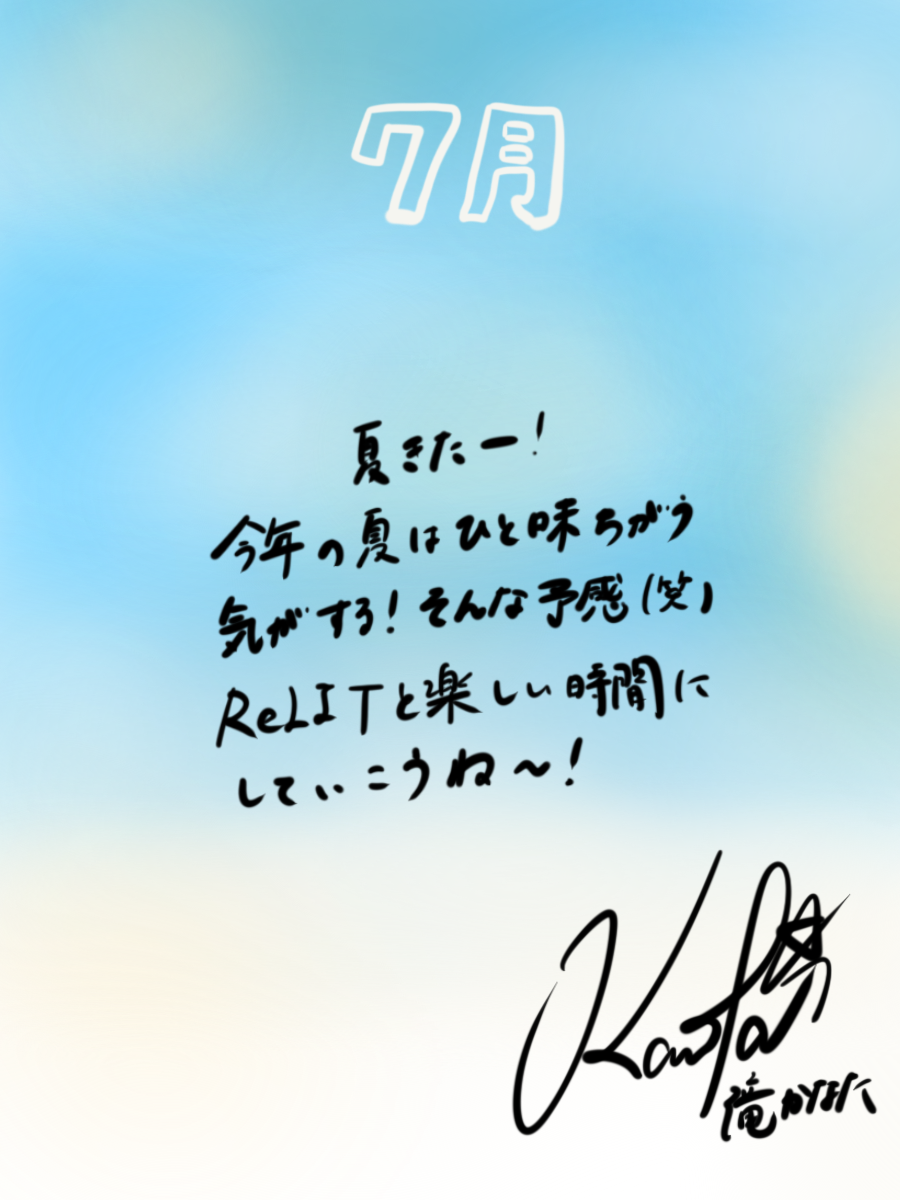 7月
夏きたー!
今年の夏はひと味ちがう
気がする!そんな予感(笑)
ReLITと楽しい時間に
していこうね〜!